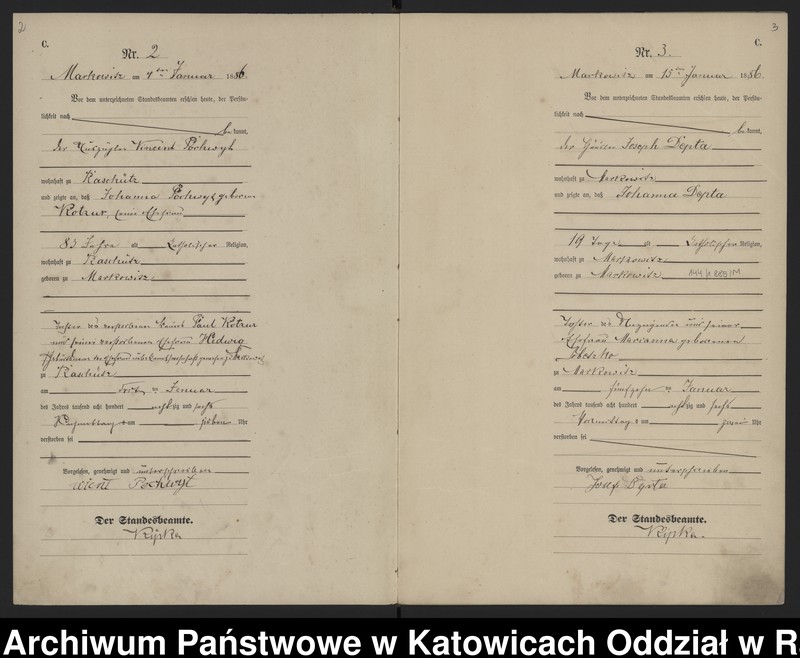 2
C.
Nr. 2
Markowitz am 4ten Januar 1886.
Vor dem unterzeichneten Standesbeamten erschien heute, der Persön-
lichkeit nach
be kannt,
der Auszügler Vincent Pochwyt
wohnhaft zu Raschütz
und zeigte an, daß Johanna Pochwyt geborene
Kotzur, seine Ehefrau
83 Jahre alt katholischer Religion,
wohnhaft zu Raschütz
geboren zu Markowitz
Tochter des verstorbenen Paul Kotzur
und seiner verstorbenen Ehefrau Hedwig
zu Raschütz
am Januar
des Jahres tausend acht hundert achtzig und sechs
Nachmittags um sieben Uhr
verstorben sei
Vorgelesen, genehmigt und unterschrieben
Pochwyt
Der Standesbeamte.
3
C.
Nr. 3.
Markowitz am 15ten Januar 1886.
Vor dem unterzeichneten Standesbeamten erschien heute, der Persön-
lichkeit nach
be kannt,
der Häusler Joseph Depta
wohnhaft zu Markowitz
und zeigte an, daß Johanna Depta
19 Tage alt katholischer Religion,
wohnhaft zu Markowitz
geboren zu Markowitz
Tochter des Anzeigenden und seiner
Ehefrau Marianna geborenen
zu Markowitz
am fünfzehn ten Januar
des Jahres tausend acht hundert achtzig und sechs
Vormittags um zwei Uhr
verstorben sei
Vorgelesen, genehmigt und unterschrieben
Josef Depta
Der Standesbeamte.
Archiwum Państwowe w Katowicach Oddział w R